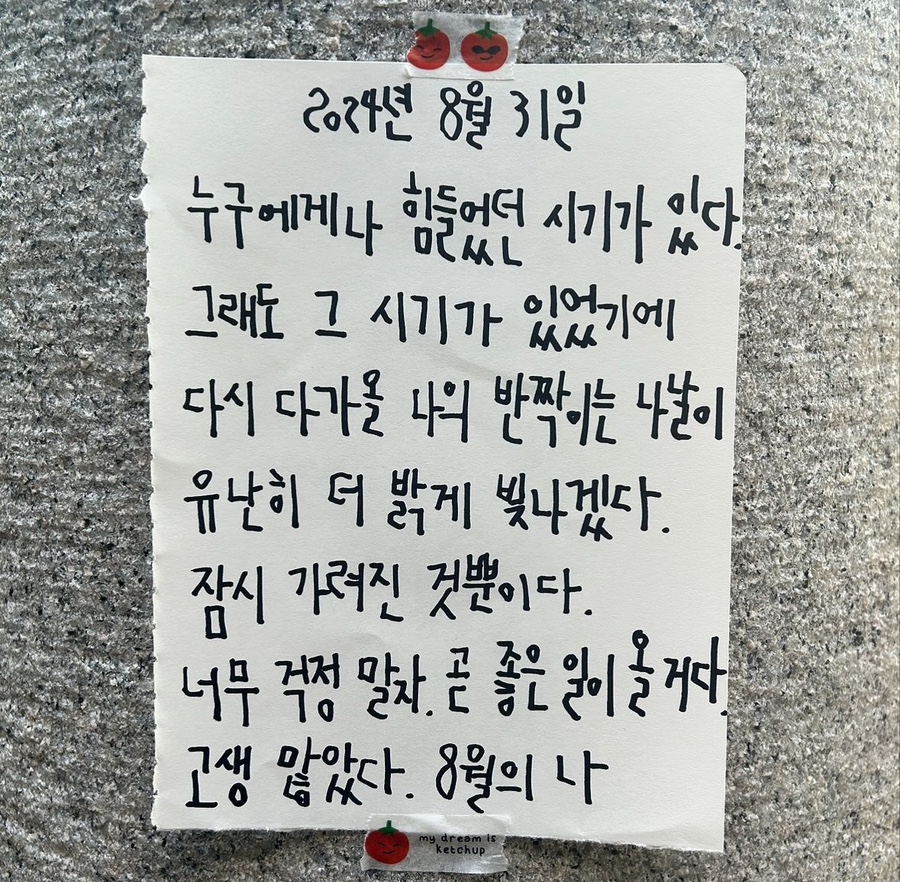 2024년 8월 31일
누구에게나 힘들었던 시기가 있다.
그래도 그 시기가 있었기에
다시 다가올 나의 반짝이는 나날이
유난히 더 밝게 빛나겠다.
잠시 가려진 것뿐이다.
너무 걱정 말자. 곧 좋은 일이 올 거다.
고생 많았다. 8월의 나
my dream is
ketchup